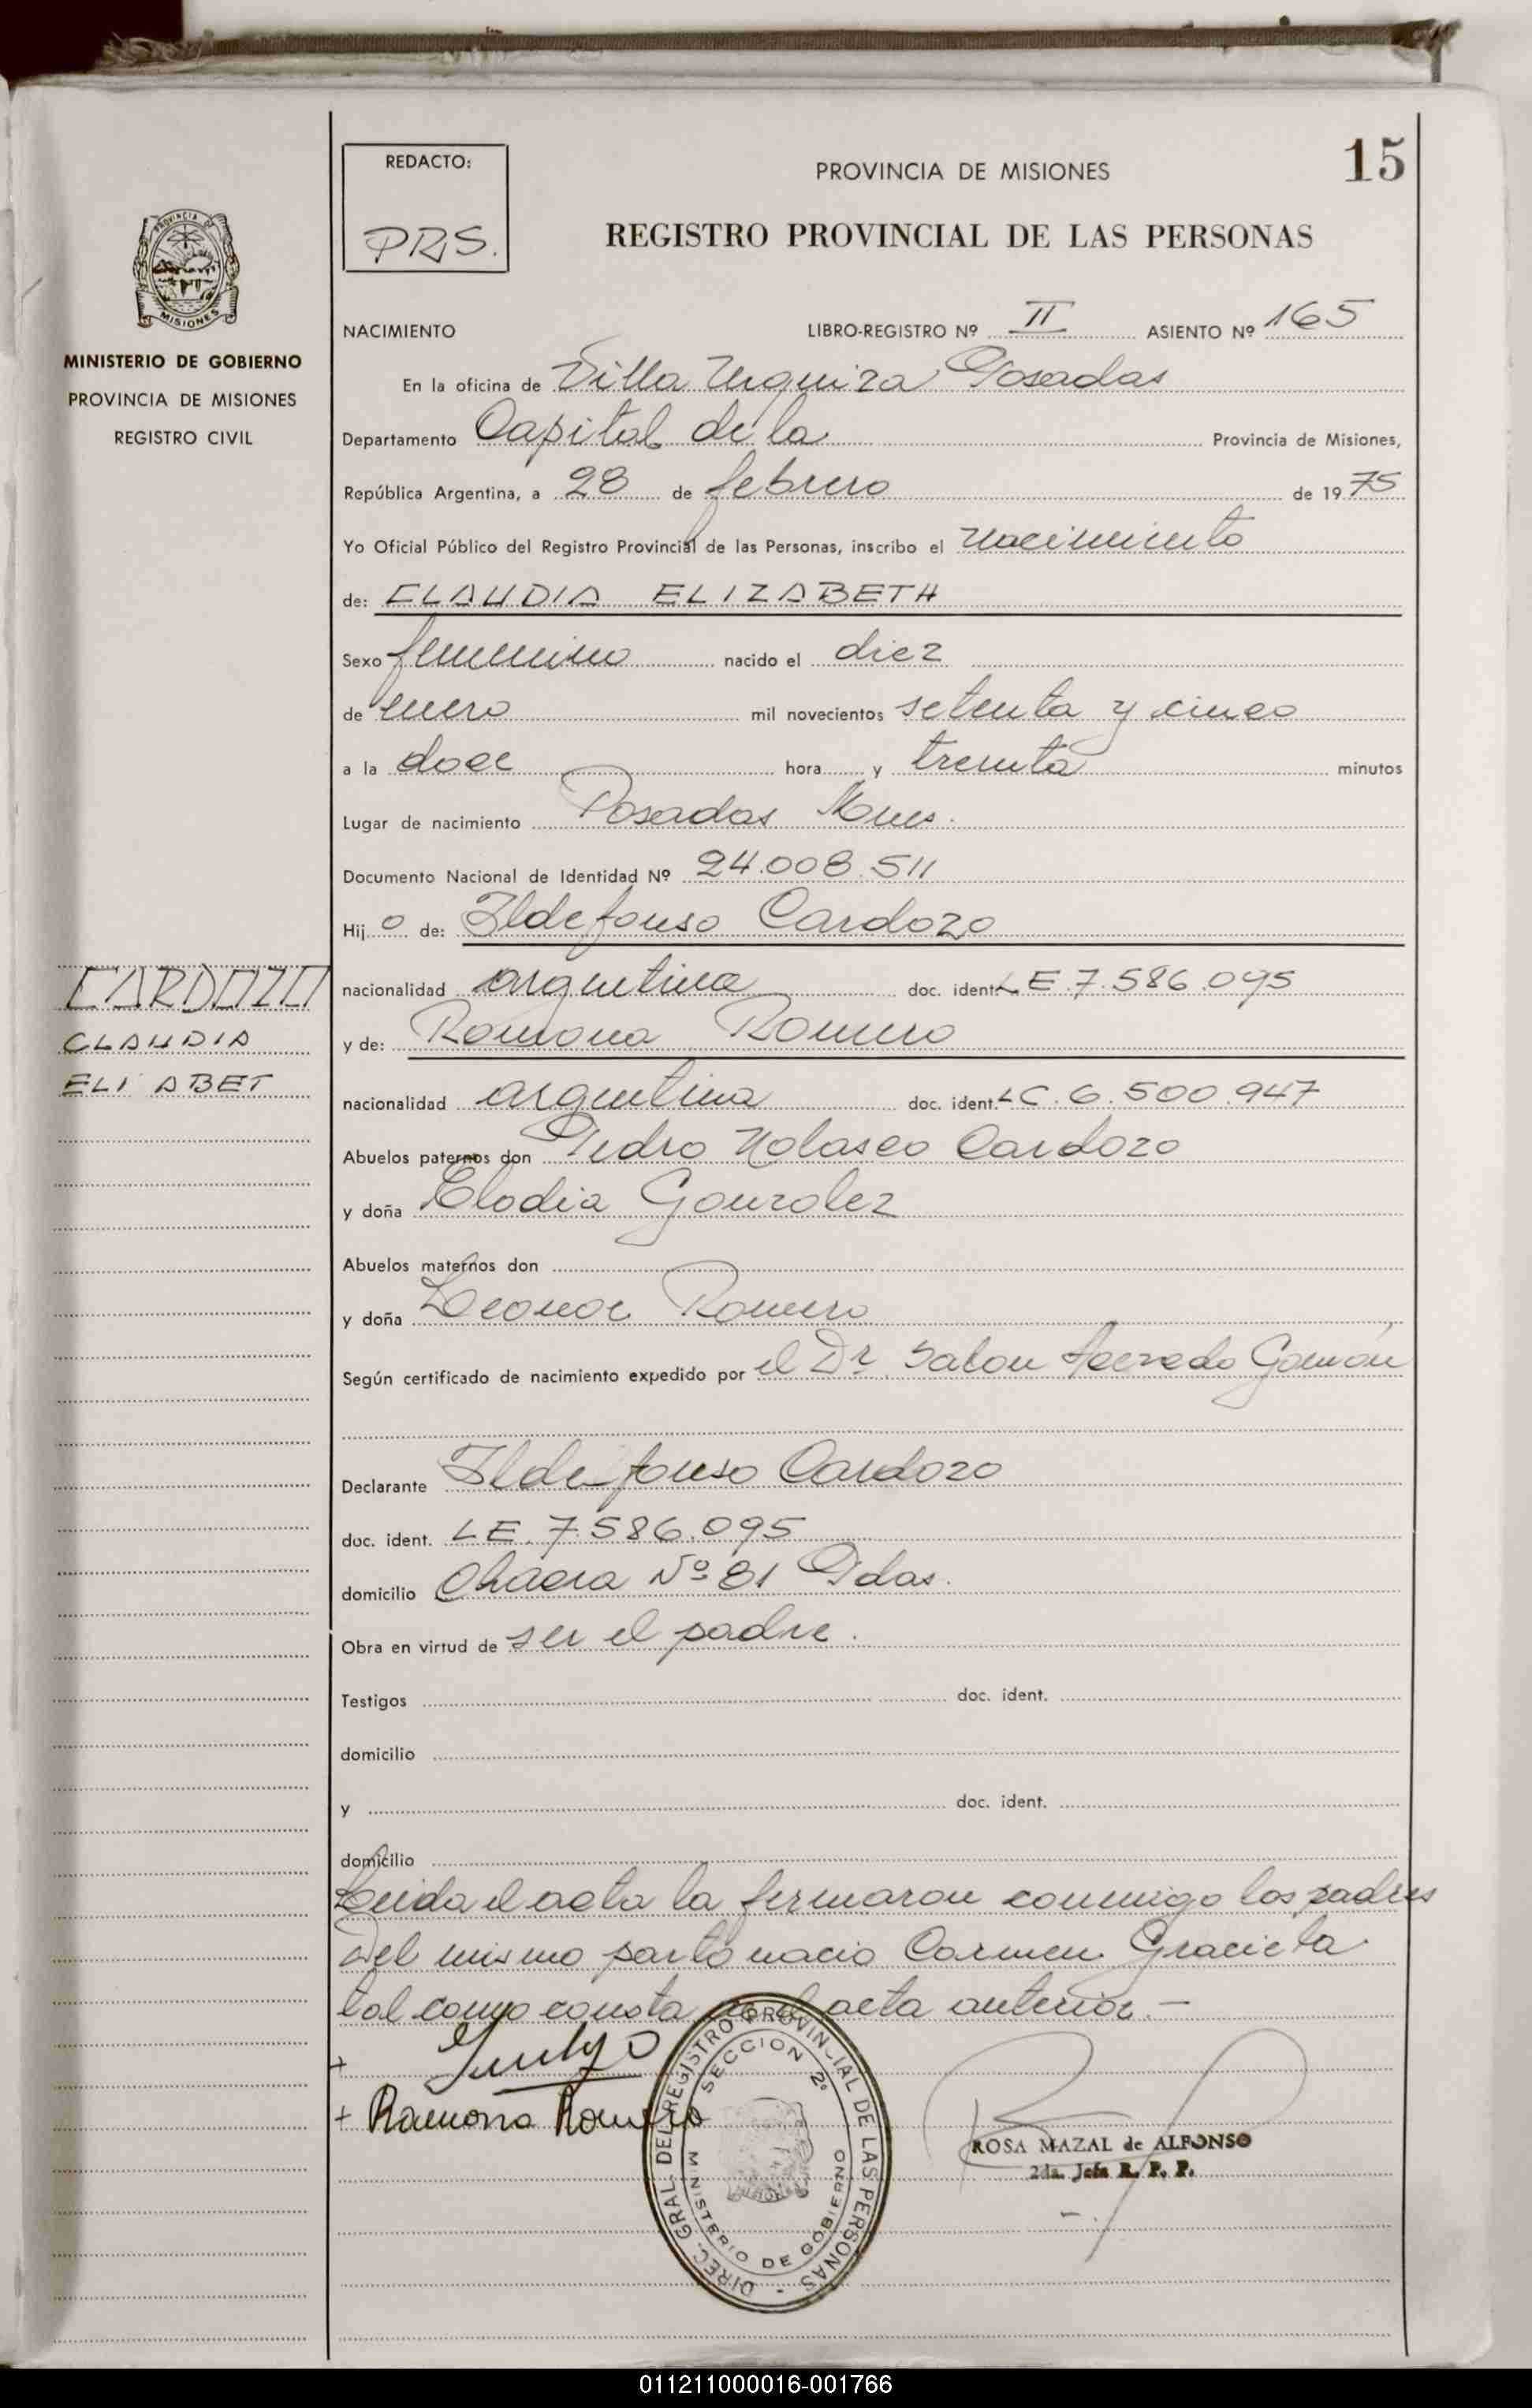 15
REDACTO:
PRS.
PROVINCIA DE MISIONES
REGISTRO PROVINCIAL DE LAS PERSONAS
PROVINCIA DE
MISIONES
MINISTERIO DE GOBIERNO
PROVINCIA DE MISIONES
REGISTRO CIVIL
NACIMIENTO LIBRO-REGISTRO Nº II ASIENTO Nº 165
En la oficina de Villa Urquiza Posadas
Departamento Capital de la Provincia de Misiones,
República Argentina, a 28 de febrero de 1975
Yo Oficial Público del Registro Provincial de las Personas, inscribo el nacimiento
de: CLAUDIA ELIZABETH
Sexo femenino nacido el diez
de enero mil novecientos setenta y cinco
a la doce hora y treinta minutos
Lugar de nacimiento Posadas Mnes.
Documento Nacional de Identidad Nº 24.008.511
Hijo de: Ildefonso Cardozo
CARDOZO
CLAUDIA
ELI ABET
nacionalidad argentina doc. ident. LE.7.586.095
y de: Ramona Romero
nacionalidad argentina doc. ident. LC.6.500.947
Abuelos paternos don Pedro Nolasco Cardozo
y doña Elodia Gonzalez
Abuelos maternos don
y doña Leonor Romero
Según certificado de nacimiento expedido por el Dr. Acevedo
Declarante Ildefonso Cardozo
doc. ident. LE.7.586.095
domicilio Chacra Nº 81 Pdas.
Obra en virtud de ser el padre.
Testigos doc. ident.
domicilio
y doc. ident.
domicilio
Leida el acta la firmaron conmigo los padres
Del mismo parto nacio Carmen Graciela
tal como consta en el acta anterior.-
+
+ Ramona Romero
DIREC. GRAL. DEL REGISTRO PROVINCIAL DE LAS PERSONAS
SECCION 2ª
MINISTERIO DE GOBIERNO
ROSA MAZAL de ALFONSO
2da. Jefa R. P. P.
011211000016-001766